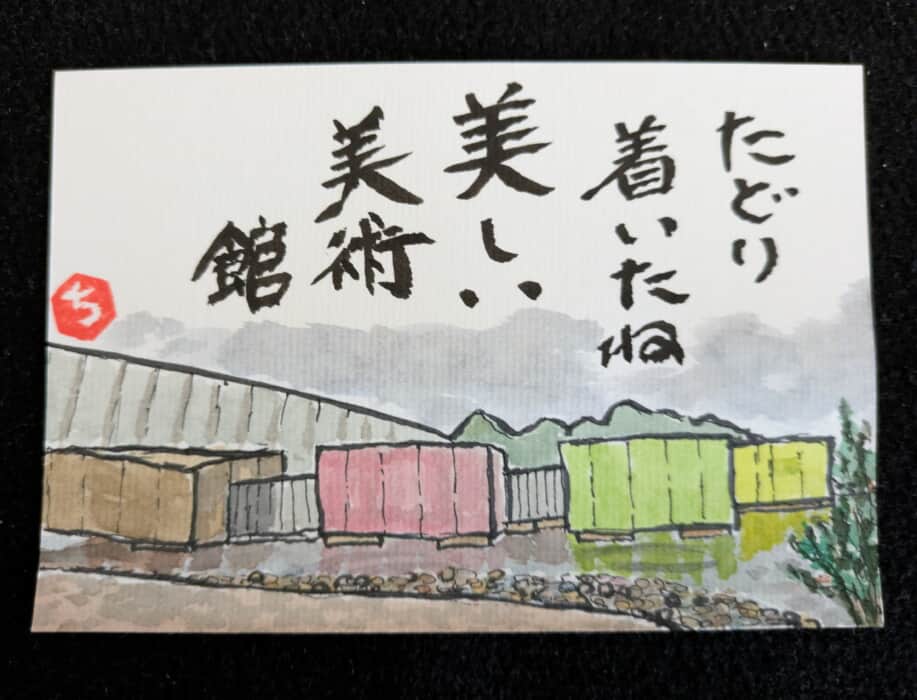 たどり
着いたね
美しい
美術
館
ち